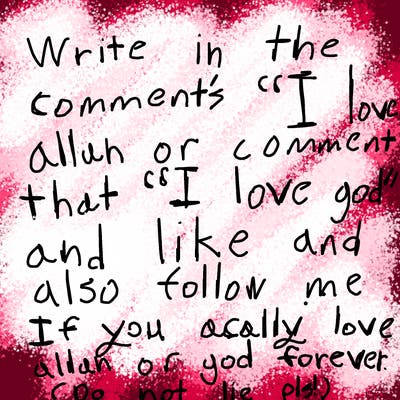 Write in the
comment's “I love
allah or comment
that “I love god”
and like and
also follow me
If you acally love
allah or god forever.
(Do not lie pls!)